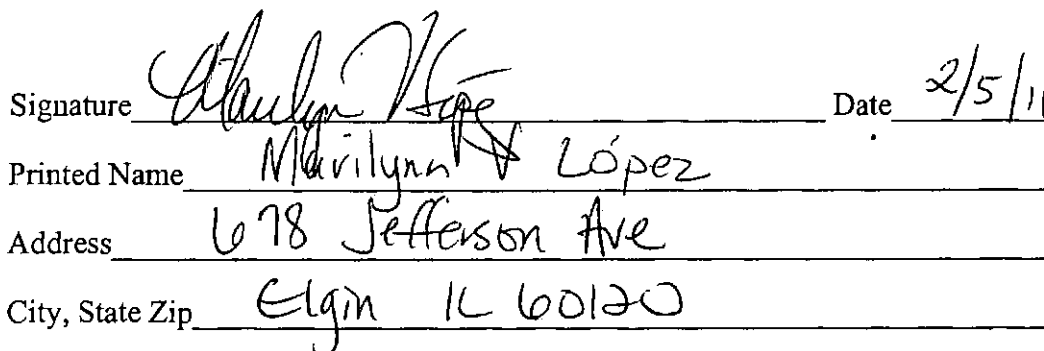 Signature Date 2/5/11
Printed Name Marilynn López
Address 678 Jefferson Ave
City, State Zip Elgin IL 60120